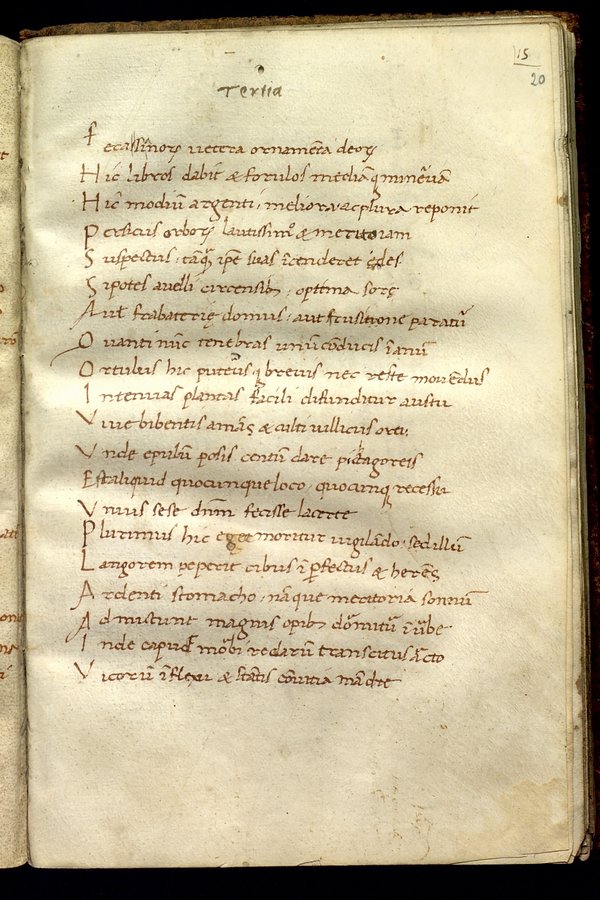 15
20
Tertia
fecassinorꝝ uetera ornamēta deorꝝ
Hic libros dabit & forulos mediāq̨ mineruā
Hic modiū argenti, meliora ac plura reponit
Persicus orborꝝ lautissimꝰ & merito iam
Suspectus, tāq̄ ip̄e suas īcenderet ędes
Si potes auelli circensibꝫ, optima sorę
Aut frabaterię domus, aut frusinone paratū
Quanti nūc tenebras unū conducis ī anū
Ortulus hic puteusq̨ breuis nec reste mouēdus
In tenuas plantas facili difunditur austu
Viue bidentis amās & culti uillicus orti
Vnde epulū posis centū dare pictagoreis
Est aliquid quocunque loco, quocunq̨ recessu
Vnius sese dn̄m fecisse lacerte
Plurimus hic eger moritur uigilādo, sed illū
Langorem peperit cibus īperfectus & herēs
Ardenti stomacho, nā que meritoria sonnū
Admictunt magnis opibꝫ dormitū ī ūbe
Inde capud morbi redarū transcitus arcto
Vicorū īflexu & stātis cōuitia mādre